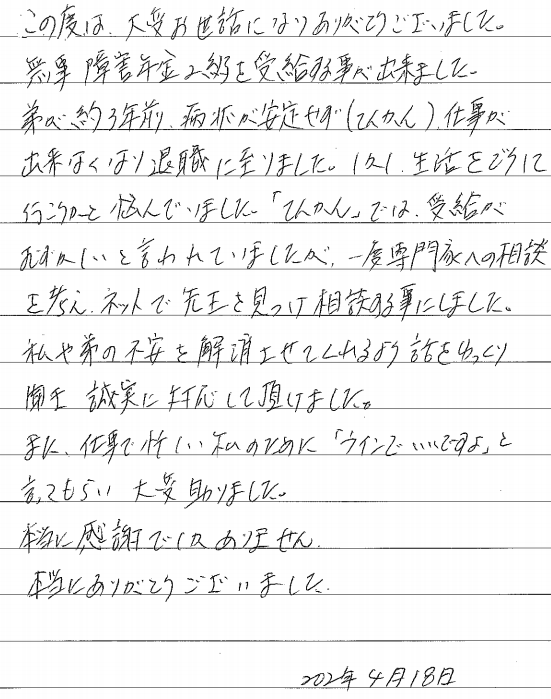 この度は、大変お世話になりありがとうございました。
無事 障害年金2級を受給する事が出来ました。
弟が約3年前、病状が安定せず(てんかん)、仕事が
出来なくなり退職に至りました。今後、生活をどうして
行こうかと悩んでいました。「てんかん」では、受給が
むずかしいと言われていましたが、一度専門家への相談
を考え、ネットで先生を見つけ相談する事にしました。
私や弟の不安を解消させてくれるよう話をゆっくり
聞き 誠実に対応して頂けました。
また、仕事で忙しい私のために「ラインでいいですよ」と
言ってもらい 大変助りました。
本当に感謝でしかありません。
本当にありがとうございました。
202年4月18日